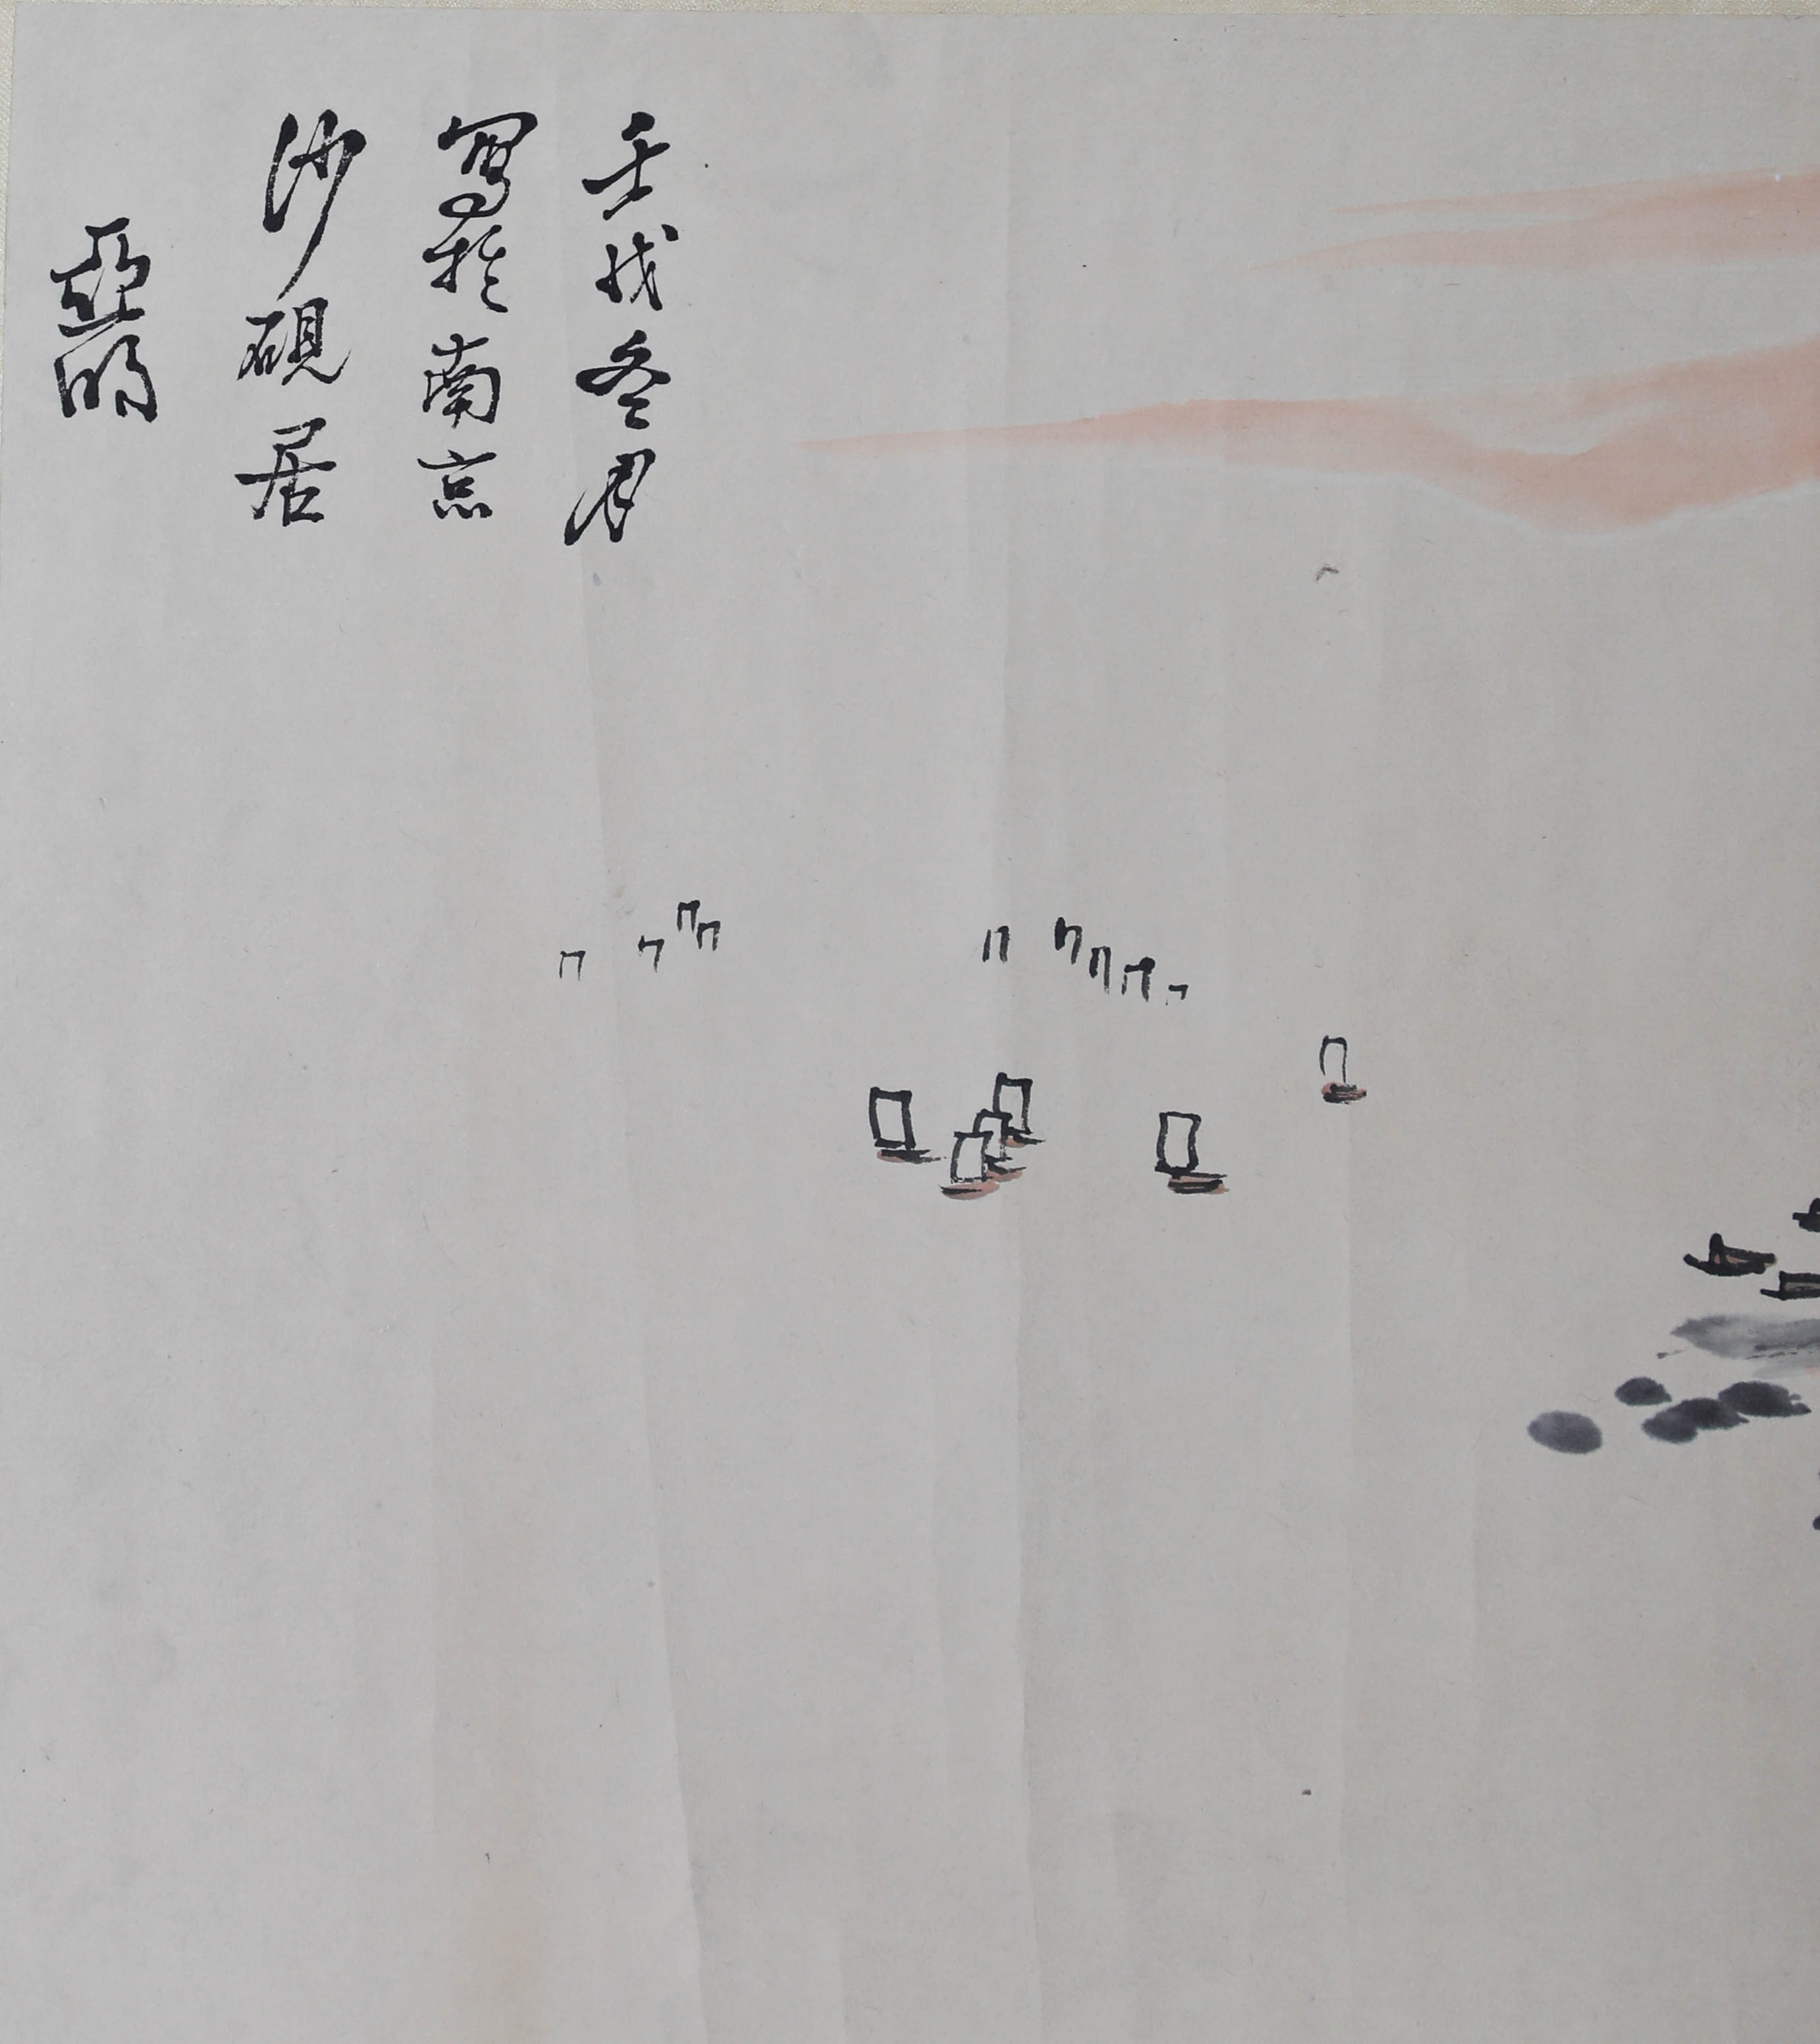 壬戌冬月
寫於南京
沙硯居
亞明